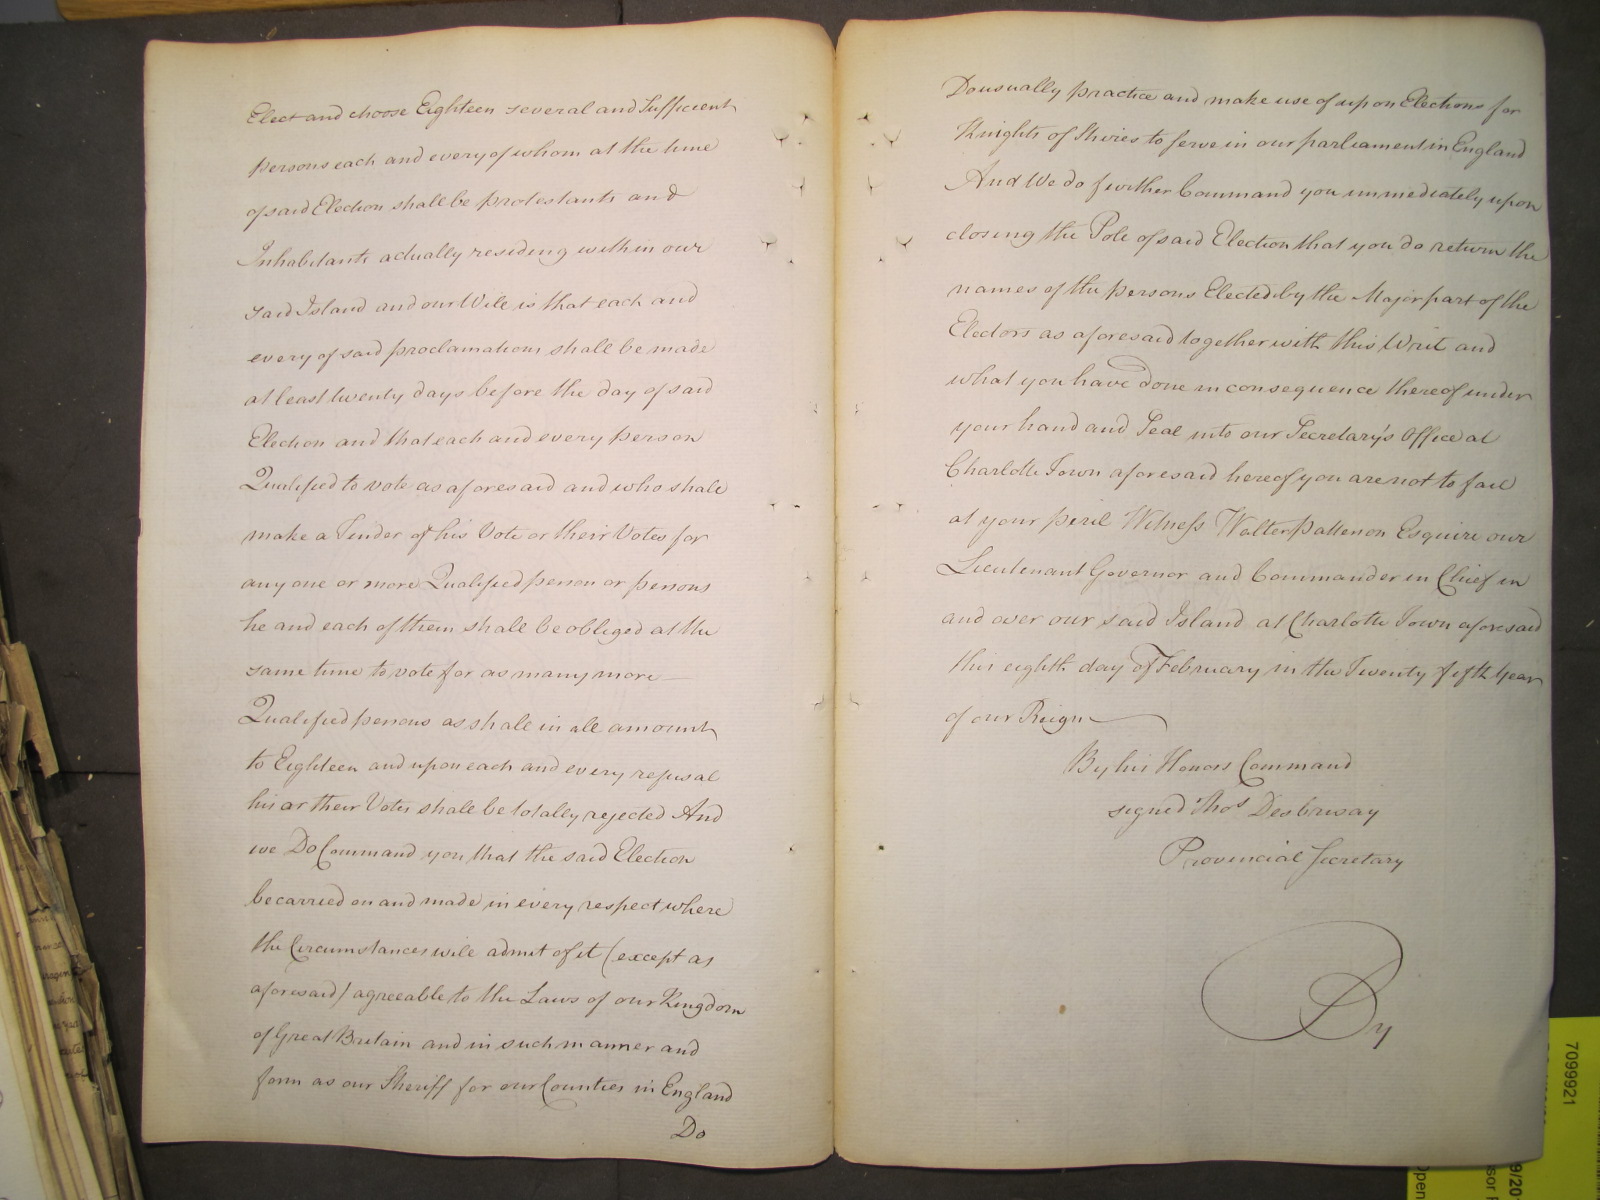 Elect and choose Eighteen several and Sufficient
persons each and every of whom at the time
of said Election shall be protestants and
Inhabitants actually residing within our
said Island and our Will is that each and
every of said proclamations shall be made
at least twenty days before the day of said
Election and that each and every person
Qualified to vote as aforesaid and who shall
make a Tinder of his Vote or their Votes for
any one or more Qualified person or persons
he and each of them shall be obliged at the
same time to vote for as many more
Qualified persons as shall in all amount
to Eighteen and upon each and every refusal
his or their Votes shall be totally rejected And
we Do Command you that the said Election
be carried on and made in every respect where
the Circumstances will admit of it (except as
aforesaid) agreeable to the Laws of our Kingdom
of Great Britain and in such manner and
form as our Sheriff for our Counties in England
Do
Do usually practice and make use of upon Elections for
Knights of Shires to serve in our parliament in England
And We do further Command you immediately upon
closing the Pole of said Election that you do return the
names of the persons Elected by the Major part of the
Electors as aforesaid together with this Writ and
what you have done in consequence thereof under
your hand and Seal into our Secretary's Office at
Charlotte Town aforesaid hereof you are not to fail
at your peril Witness Walter Patterson Esquire our
Lieutenant Governor and Commander in Chief in
and over our said Island at Charlotte Town aforesaid
this eighth day of February in the Twenty fifth Year
of our Reign
By his Honors Command
signed Thos Desbrisay
Provincial Secretary
By
7099921